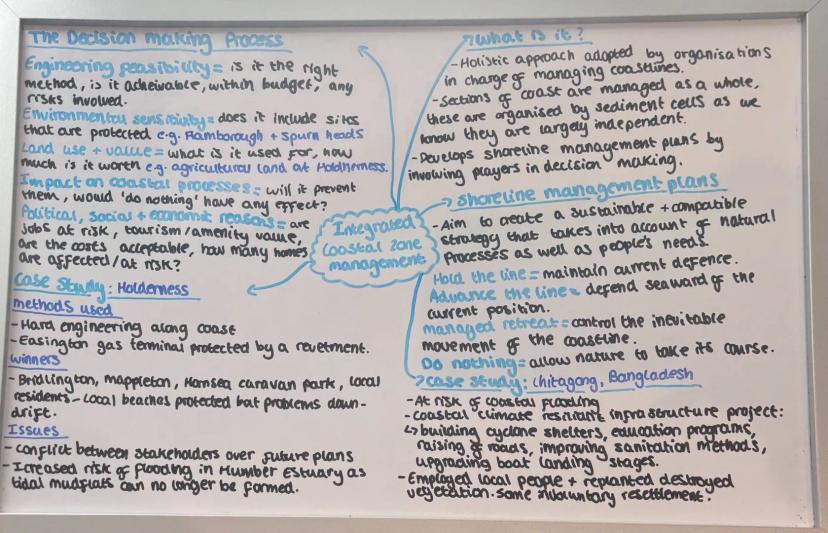 The Decision making Process
Engineering feasibility = is it the right
method, is it acheivable, within budget, any
risks involved.
Environmental sensitivity = does it include sites
that are protected e.g. Flamborough + Spurn heads
Land use + value = what is it used for, how
much is it worth e.g. agricultural land at Holdnerness.
Impact on coastal processes = will it prevent
them, would 'do nothing' have any effect?
Political, social + economic reasons = are
jobs at risk, tourism/amenity value,
are the costs acceptable, how many homes
are affected/at risk?
Case Study: Holderness
methods used
- Hard engineering along coast
- Easington gas terminal protected by a revetment.
winners
- Bridlington, mappleton, Hornsea caravan park, local
residents - local beaches protected but problems down-
drift.
Issues
- conflict between stakeholders over future plans
- Increased risk of flooding in Humber Estuary as
tidal mudflats can no longer be formed.
Integrated
Coastal zone
management
What is it?
- Holistic approach adopted by organisations
in charge of managing coastlines.
- Sections of coast are managed as a whole,
these are organised by sediment cells as we
know they are largely independent.
- Develops shoreline management plans by
involving players in decision making.
Shoreline management plans
- Aim to create a sustainable + compatible
strategy that takes into account of natural
Processes as well as people's needs.
Hold the line = maintain current defence.
Advance the line = defend seaward of the
current position.
managed retreat = control the inevitable
movement of the coastline.
Do nothing = allow nature to take its course.
Case study: Chitagong, Bangladesh
- At risk of coastal flooding
- Coastal climate resiliant infrastructure project:
↳ building cyclone shelters, education programs,
raising of roads, improving sanitation methods,
upgrading boat landing stages.
- Employed local people + replanted destroyed
vegetation. Some involuntary resettlement.